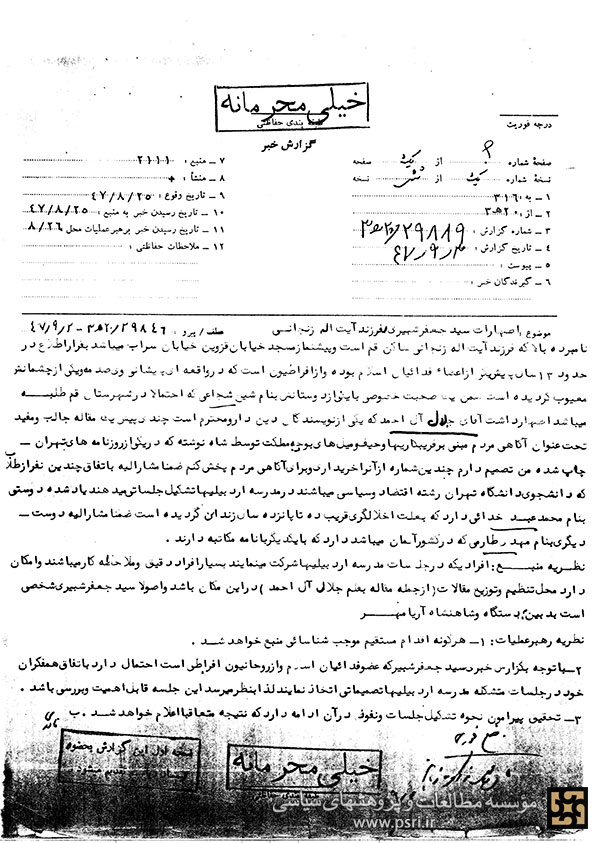 خیلی محرمانه
طبقه بندی حفاظتی
درجه فوریت
گزارش خبر
صفحهٔ شماره ۱ از یک صفحه
نسخهٔ شماره یک از شش نسخه
۱ ـ به : ۳۱۶
۲ ـ از : ۲۰ ه ۳
۳ ـ شماره گزارش : ۲۹۸۸۹ / ۲۰ ه ۳
۴ ـ تاریخ گزارش :
۵ ـ پیوست :
۶ ـ گیرندگان خبر :
۷ ـ منبع : ۲۱۱۱
۸ ـ منشأ : +
۹ ـ تاریخ وقوع : ۴۷/۸/۲۵
۱۰ ـ تاریخ رسیدن خبر به منبع : ۴۷/۸/۲۵
۱۱ ـ تاریخ رسیدن خبر برهبر عملیات محل ۸/۲۶
۱۲ ـ ملاحظات حفاظتی :
موضوع : اظهارات سید جعفر شبیری فرزند آیت اله زنجانی
عطف / پیرو : ۲۹۸۴۶ / ۲۰ ه ۳ - ۴۷/۹/۲
نامبرده بالا که فرزند آیت اله زنجانی ساکن قم است و پیشنماز مسجد خیابان قزوین خیابان سراب میباشد بقرار اطلاع در
حدود ۱۳ سال پیش نیز از اعضاء فدائیان اسلام بوده و از افراطیون است که در واقعه ای پیشانی وی صدمه و یکی از چشمانش
معیوب گردیده است ضمن یک صحبت خصوصی با یکی از دوستانش بنام شین شجاعی که احتمالا در شهرستان قم طلبه
میباشد اظهار داشت آقای جلال آل احمد که یکی از نویسندگان دین دار و محترم است چندی پیش یک مقاله جالب و مفید
تحت عنوان آگاهی مردم مبنی بر فریبکاریها و حیف و میل های بودجه مملکت توسط شاه نوشته که در یکی از روزنامه های تهران ـ
چاپ شده من تصمیم دارم چندین شماره از آنرا خریداری و برای آگاهی مردم پخش کنم ضمنا مشارالیه باتفاق چندین نفر از طلاب
که دانشجوی دانشگاه تهران رشته اقتصاد و سیاسی میباشند در مدرسه اردبیلیها تشکیل جلساتی میدهند یاد شده دوستی
بنام محمد عبد خدائی دارد که بعلت اخلالگری قریب ده تا پانزده سال زندانی گردیده است ضمنا مشارالیه دوست ـ
دیگری بنام مهد رطارمی که در کشور آلمان میباشد دارد که بایکدیگر با نامه مکاتبه دارند .
نظریه منبع : افرادیکه در جلسات مدرسه اردبیلیها شرکت مینمایند بسیار افراد دقیق و ملاحظه کار میباشند و امکان
دارد محل تنظیم و توزیع مقالات ( از جمله مقاله بقلم جلالی آل احمد ) در این مکان باشد و اصولا سید جعفر شبیری شخصی
است بدبین بدستگاه و شاهنشاه آریامهر
نظریه رهبر عملیات : ۱- هرگونه اقدام مستقیم موجب شناسائی منبع خواهد شد .
۲- با توجه بگزارش خبر و سید جعفر شبیر که عضو فدائیان اسلام و از روحانیون افراطی است احتمال دارد باتفاق همفکران
خود در جلسات متشکله مدرسه اردبیلیها تصمیماتی اتخاذ نمایند لذا بنظر میرسد این جلسه قابل اهمیت و بررسی باشد .
۳- تحقیق پیرامون نحوه تشکیل جلسات و نفوذ در آن ادامه دارد که نتیجه متعاقبا اعلام خواهد شد . ب
نسخه اول این گزارش بعضوه
تقدیم میشود
خیلی محرمانه
طبقه بندی حفاظتی
موسسه مطالعات و پژوهشهای سیاسی
www.psri.ir